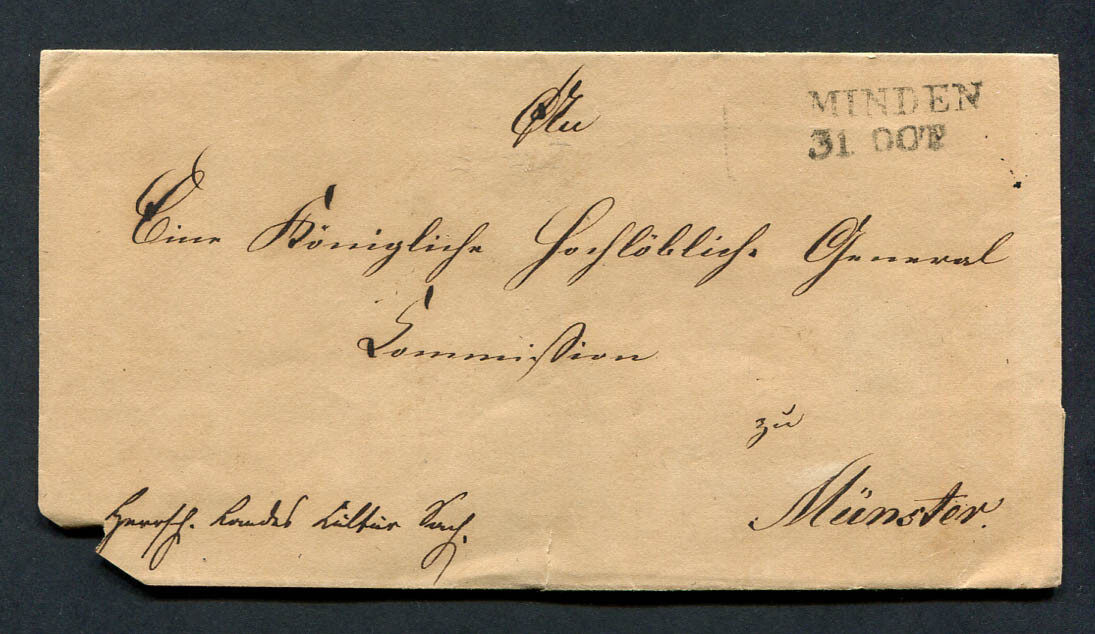 MINDEN
31 OCT
An
Eine Königliche Hochlöbliche General
Commission
zu
Münster.
Herrsch. Landes Cultur Sach.